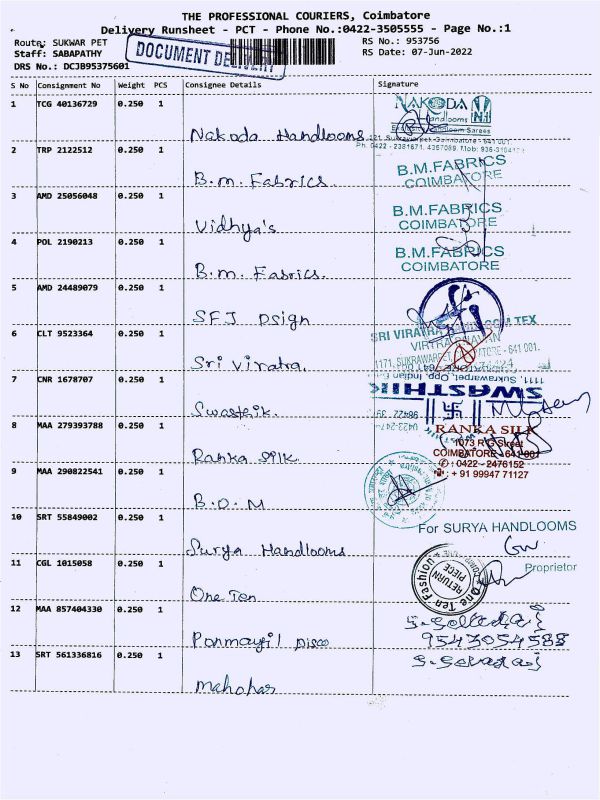 THE PROFESSIONAL COURIERS, Coimbatore
Delivery Runsheet - PCT - Phone No.:0422-3505555 - Page No.:1
Route: SUKWAR PET
RS No.: 953756
Staff: SABAPATHY
RS Date: 07-Jun-2022
DOCUMENT DELIVERY
DRS No.: DCJB95375601
S No Consignment No Weight PCS Consignee Details Signature
1 TCG 40136729 0.250 1
NAKODA
Handlooms
Nakoda Handlooms
2 TRP 2122512 0.250 1
B.M.FABRICS
COIMBATORE
B.M. Fabrics
3 AMD 25056048 0.250 1
B.M.FABRICS
COIMBATORE
Vidhya's
4 POL 2190213 0.250 1
B.M.FABRICS
COIMBATORE
B.M. Fabrics.
5 AMD 24489079 0.250 1
SFJ Dsign
6 CLT 9523364 0.250 1
SRI VIRATRA
TEX
Sri Viratra.
7 CNR 1678707 0.250 1
1111, Sukrawarpet, Opp. Indian
SWASTHIK
Swastik
8 MAA 279393788 0.250 1
RANKA SILK
1073 R G Street
COIMBATORE - 641 001
✆ : 0422 - 2476152
: + 91 99947 71127
Ranka Silk
9 MAA 290822541 0.250 1
B.O.M
10 SRT 55849002 0.250 1
For SURYA HANDLOOMS
Proprietor
Surya Handlooms
11 CGL 1015058 0.250 1
One Ten Fashion
RETURN
PIECE
One Ten
12 MAA 857404330 0.250 1
9543054588
Ponmayil Disco
13 SRT 561336816 0.250 1
Mahohar